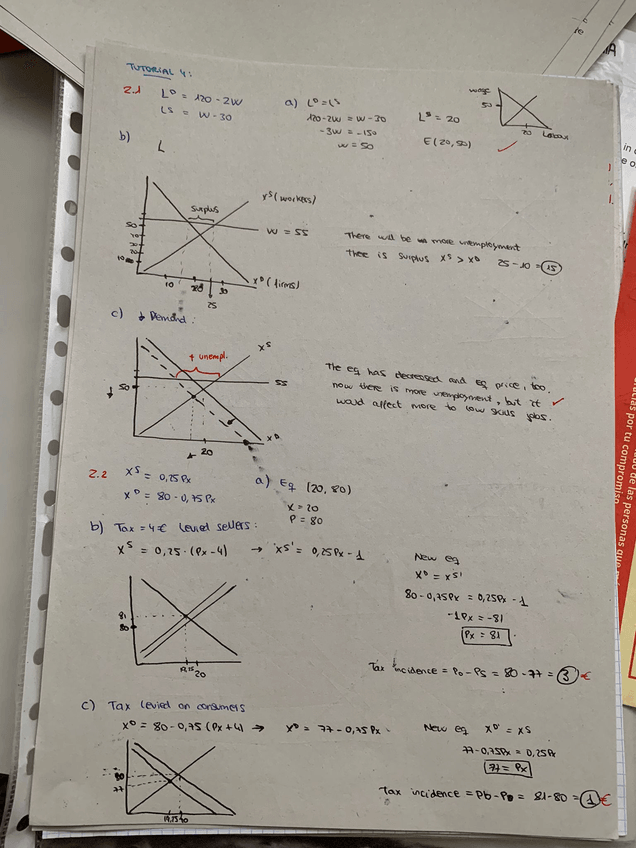 TUTORIAL 4:
2.1 L^D = 120 - 2W
L^S = W - 30
a) L^D = L^S
120 - 2W = W - 30
-3W = -150
W = 50
L^S = 20
E(20,50)
wage
50
20
Labour
b) L
Surplus
X^S (workers)
W = 55
X^D (firms)
50
10
10
30
25
There will be more unemployment
There is surplus X^S > X^D 25 - 10 = 15
c) ↓ Demand:
+ unempl.
X^S
55
50
X^D
20
The eq has decreased and eq price, too.
now there is more unemployment, but it
would affect more to low skills jobs.
2.2 X^S = 0,25Px
X^D = 80 - 0,75Px
a) Eq (20, 80)
X = 20
P = 80
b) Tax = 4€ levied sellers:
X^S = 0,25 · (Px - 4) → X^S' = 0,25Px - 1
New eq
X^D = X^S'
80 - 0,75Px = 0,25Px - 1
-1Px = -81
Px = 81
81
80
20
Tax incidence = Po - Ps = 80 - 77 = 3€
c) Tax levied on consumers
X^D = 80 - 0,75 (Px + 4) → X^D' = 77 - 0,75Px
New eq X^D' = X^S
77 - 0,75Px = 0,25Px
77 = Px
80
77
Tax incidence = Pb - Po = 81 - 80 = 1€